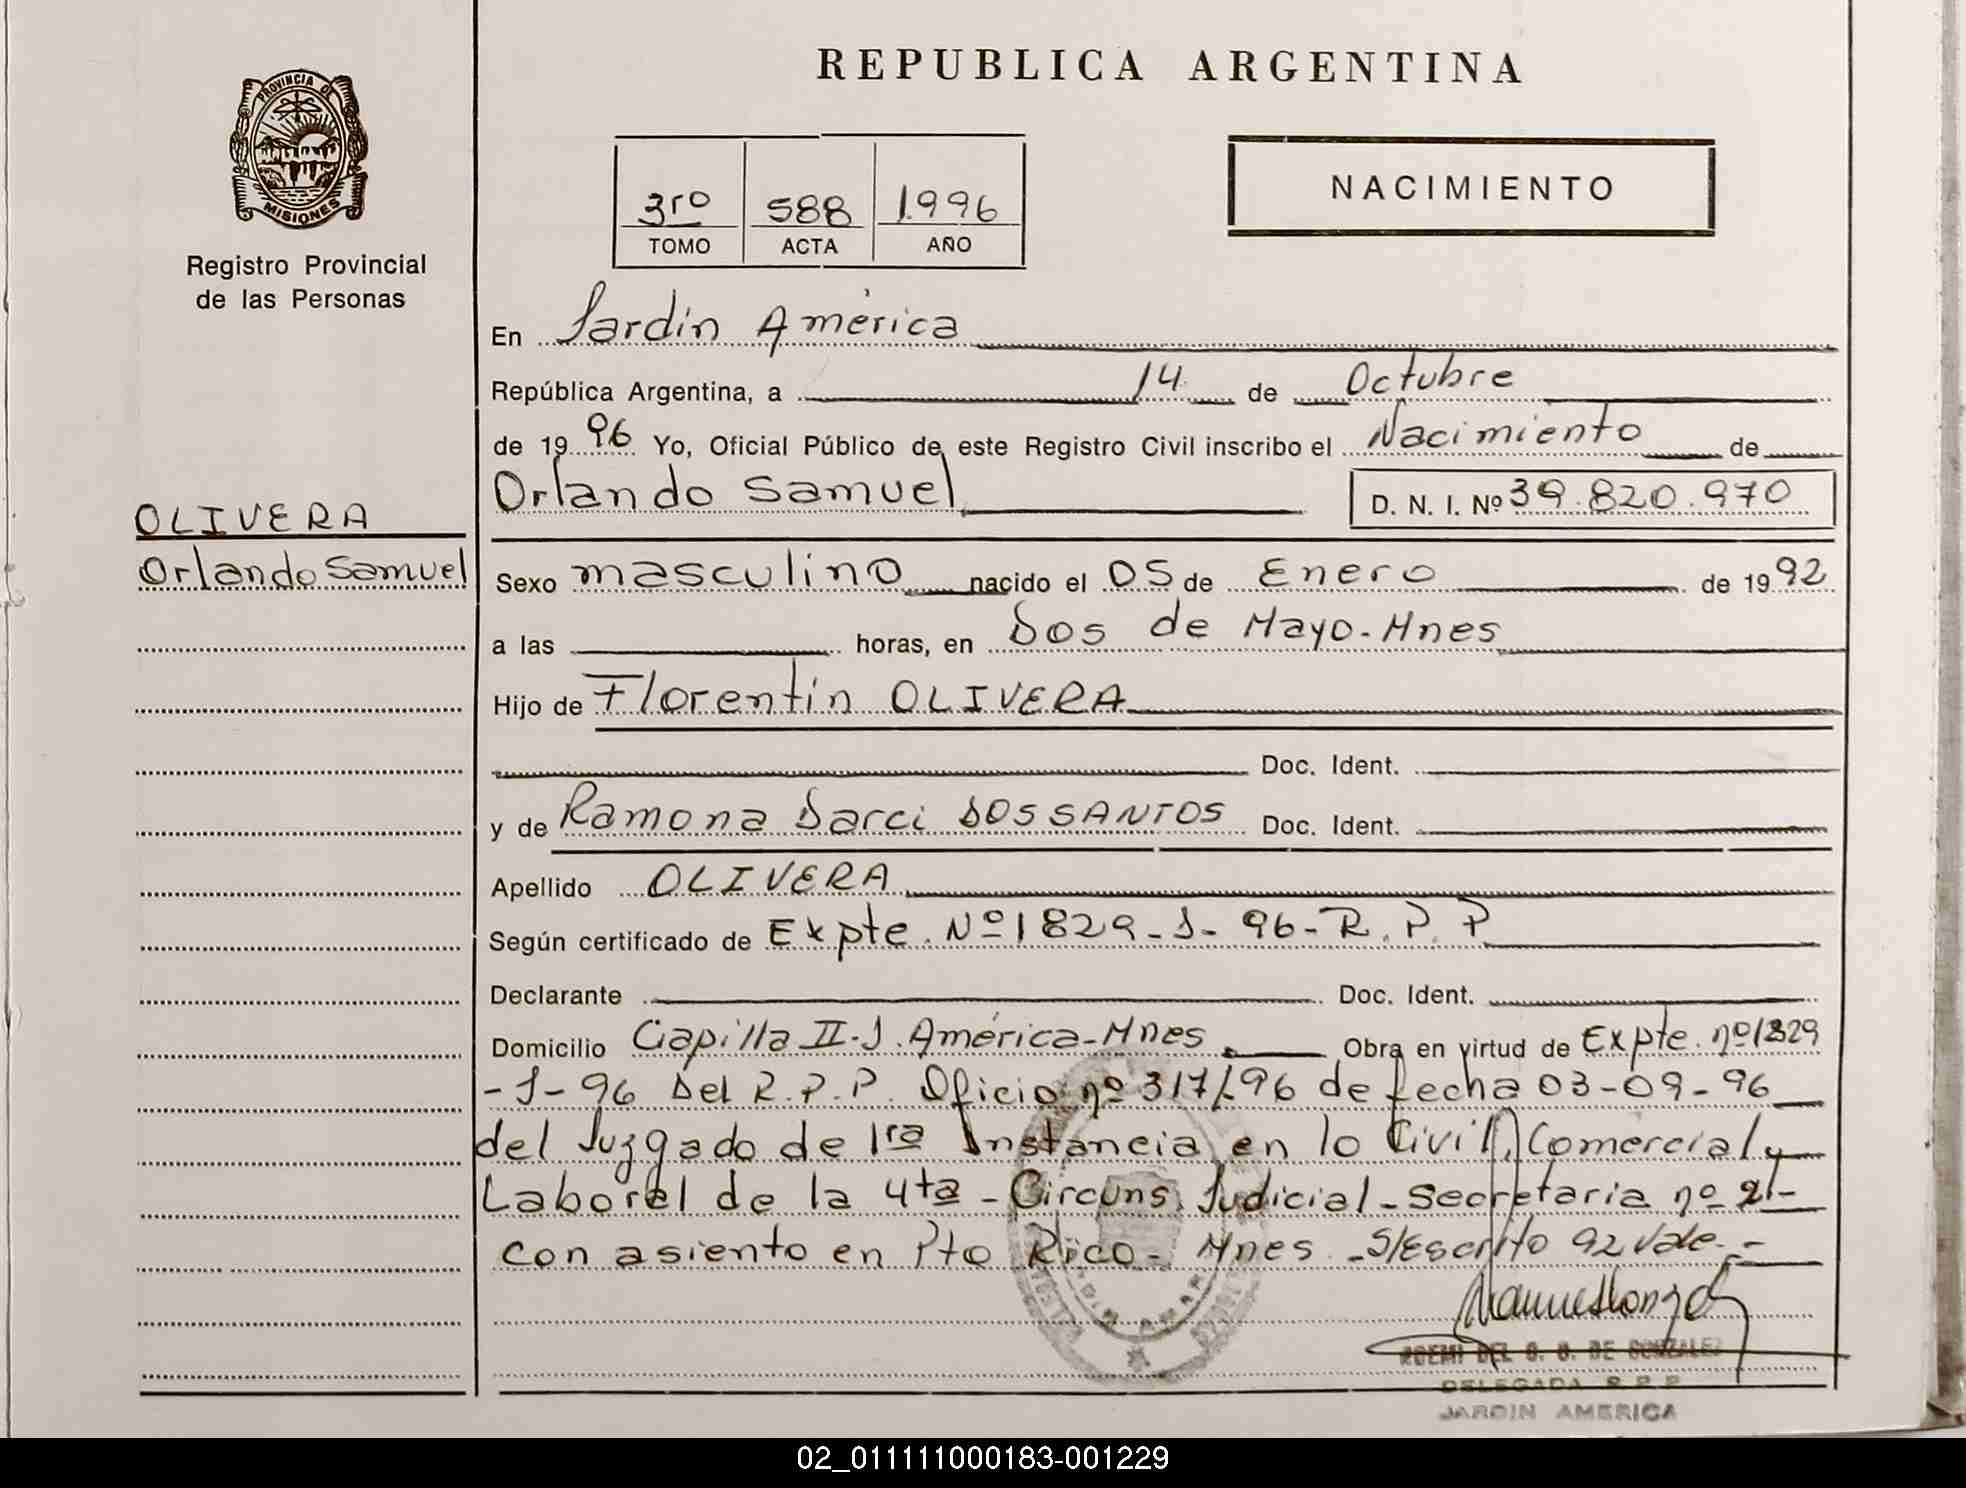 REPUBLICA ARGENTINA
PROVINCIA DE
MISIONES
Registro Provincial
de las Personas
3ro 588 1.996
TOMO ACTA AÑO
NACIMIENTO
En Jardín América
República Argentina, a 14 de Octubre
de 19 96 Yo, Oficial Público de este Registro Civil inscribo el Nacimiento de
Orlando Samuel D. N. I. Nº 39.820.970
OLIVERA
Orlando Samuel
Sexo masculino nacido el 05 de Enero de 19 92
a las horas, en Dos de Mayo-Mnes
Hijo de Florentin OLIVERA
Doc. Ident.
y de Ramona Darci DOS SANTOS Doc. Ident.
Apellido OLIVERA
Según certificado de Expte. Nº 1829-J-96-R.P.P
Declarante Doc. Ident.
Domicilio Capilla II-J. América-Mnes Obra en virtud de Expte. nº 1829
-J-96 Del R.P.P. Oficio nº 317/96 de fecha 03-09-96
del Juzgado de 1ra Instancia en lo Civil, Comercial y
Laboral de la 4ta-Circuns. Judicial-Secretaria nº 2-
con asiento en Pto Rico-Mnes-S/Escrito 92 Vale.-
NOEMI DEL C. G. DE GONZALEZ
DELEGADA R.P.P
JARDIN AMERICA
02_011111000183-001229